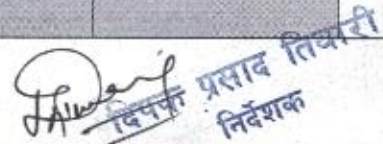 दिपक प्रसाद तिवारी
निर्देशक